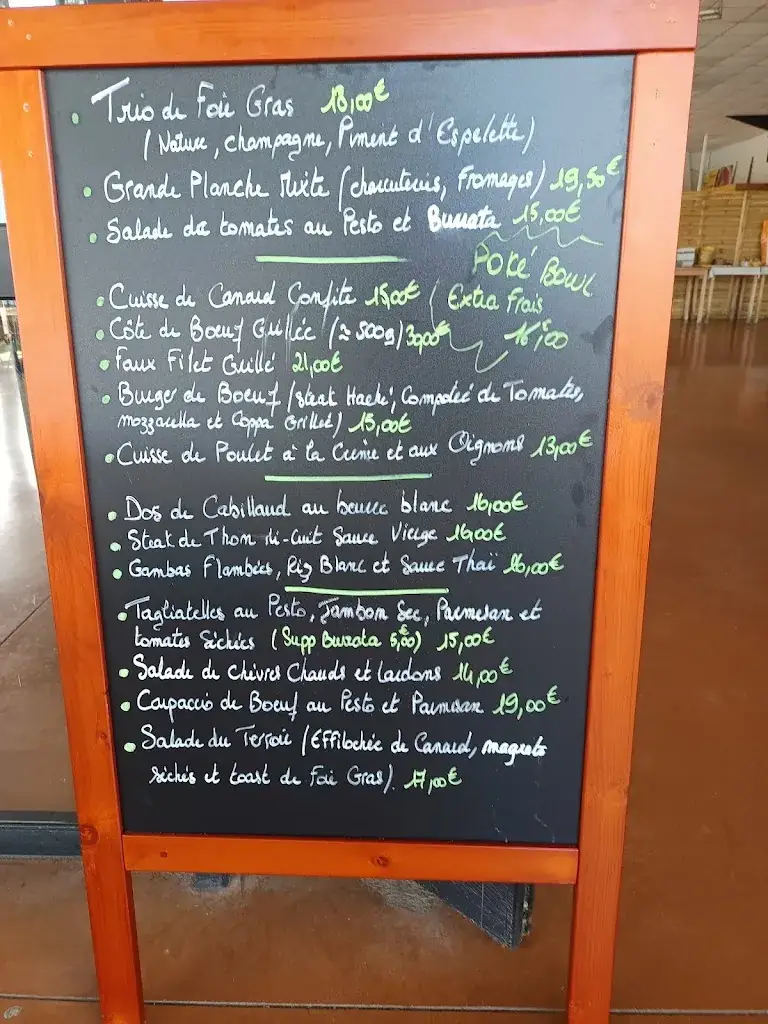 • Trio de Foie Gras 18,00€
(Nature, champagne, Piment d'Espelette)
• Grande Planche Mixte (charcuteries, Fromages) 19,50€
• Salade de tomates au Pesto et Burrata 15,00€
Poké Bowl
Extra Frais
16€00
• Cuisse de Canard Confite 15,00€
• Côte de Boeuf Grillée (≈ 500g) 30,00€
• Faux Filet Grillé 21,00€
• Burger de Boeuf (steak Haché, Compotée de Tomates,
mozzarella et Coppa Grillée) 15,00€
• Cuisse de Poulet à la Crème et aux Oignons 13,00€
• Dos de Cabillaud au beurre blanc 16,00€
• Steak de Thon mi-cuit Sauce Vierge 16,00€
• Gambas Flambées, Riz Blanc et Sauce Thaï 16,00€
• Tagliatelles au Pesto, Jambon Sec, Parmesan et
tomates Séchées (Supp Burrata 5,€00) 15,00€
• Salade de Chèvres Chauds et Lardons 14,00€
• Carpaccio de Boeuf au Pesto et Parmesan 19,00€
• Salade du Terroir (Effilochée de Canard, magrets
séchés et toast de Foie Gras) 17,00€